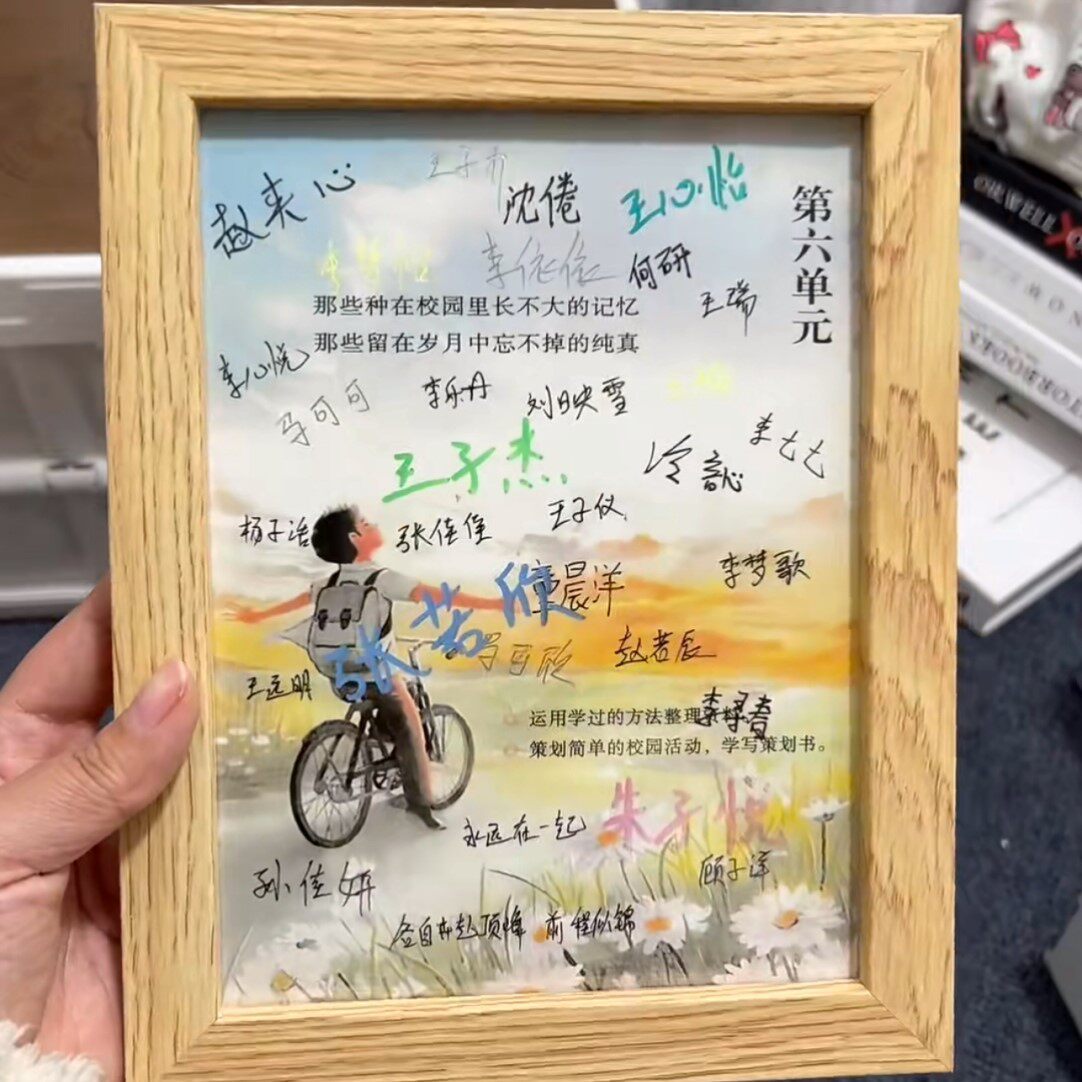 王子
沈倦
王心怡
赵夹心
第六单元
李依依
何研
那些种在校园里长不大的记忆
王瑞
那些留在岁月中忘不掉的纯真
李心悦
马可可
李乐丹
刘映雪
王子杰
冷
李七七
王子仪
杨子浩
张佳佳
李梦歌
晨洋
张若欣
马可欣
赵若辰
王远明
运用学过的方法整理
策划简单的校园活动，学写策划书。
朱子悦
永远在一起
孙佳妍
顾子洋
各自奔赴顶峰 前程似锦
ORWELL